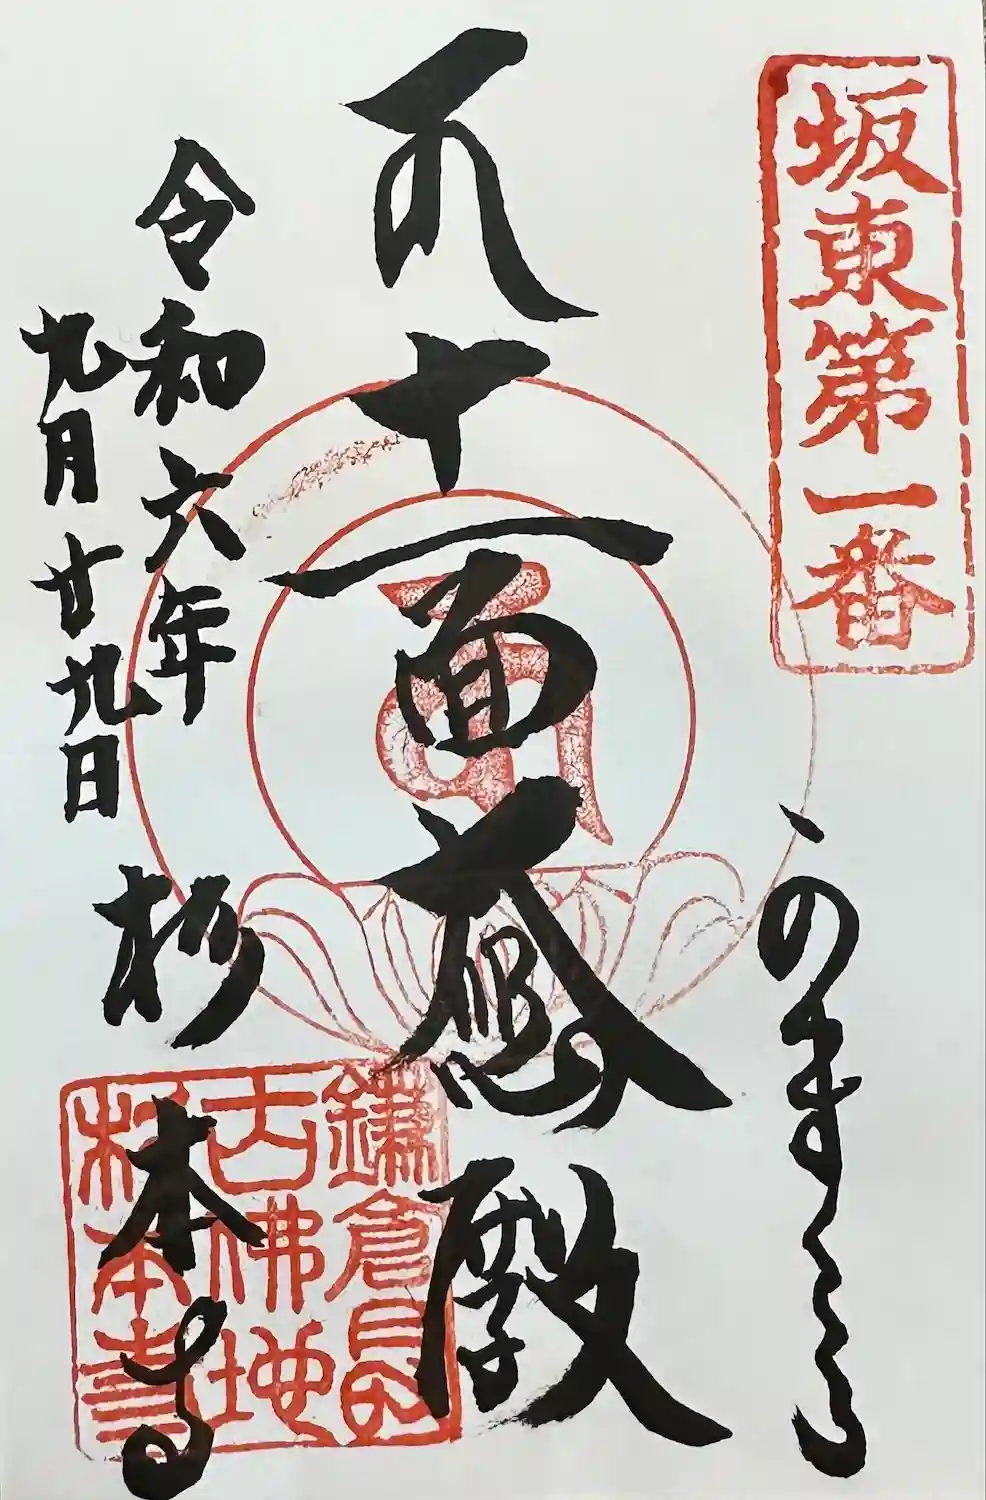 坂東第一番
十一面大悲殿
令和六年
九月廿九日
杉本寺
鎌倉最
古佛地
杉本寺